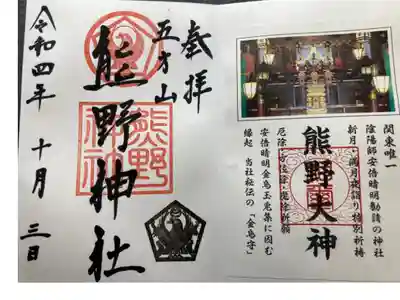 関東唯一
陰陽師安倍晴明勧請の神社
新月・満月夜詣り特別祈祷
熊野大神
安倍晴明金烏玉兎集に因む
縁起 当社秘伝の「金烏守」
奉拝
五方山
熊野神社
熊野
神社
令和四年十月三日